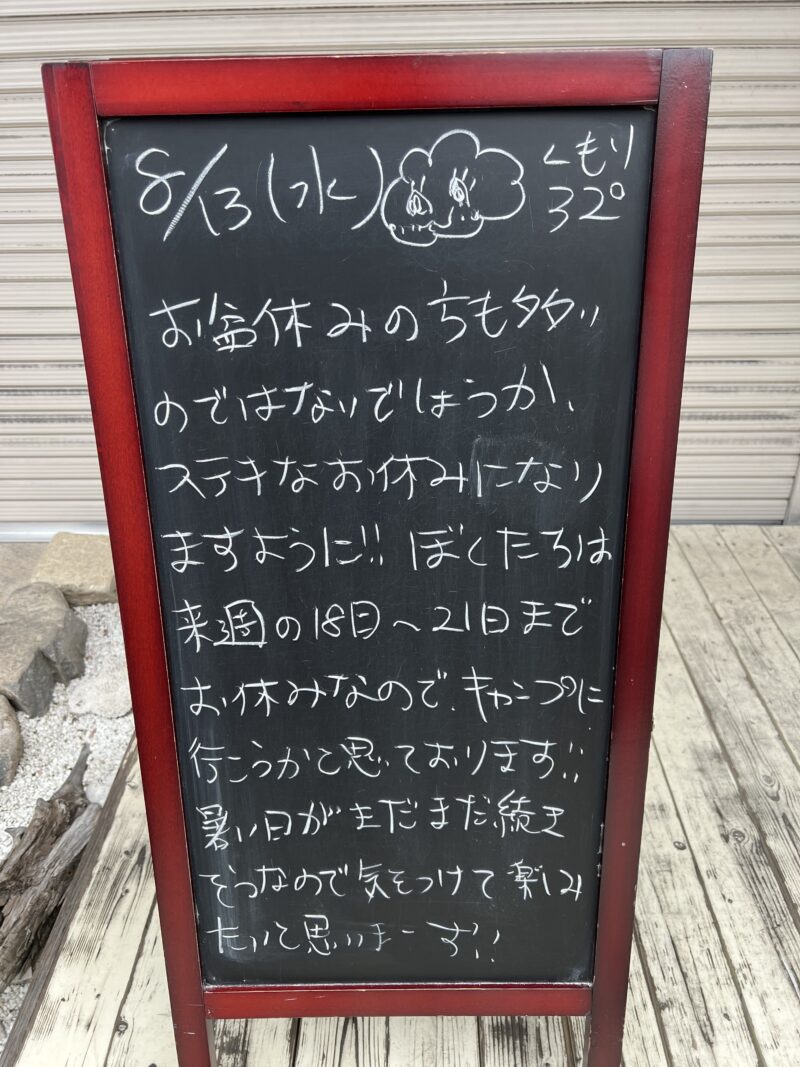 8/13(水) くもり
32°
お盆休みのちも多い
のではないでしょうか、
ステキなお休みになり
ますように!! ぼくたちは
来週の18日〜21日まで
お休みなので、キャンプに
行こうかと思っております!!
暑い日がまだまだ続き
そうなので気をつけて楽しみ
たいと思いまーす!!